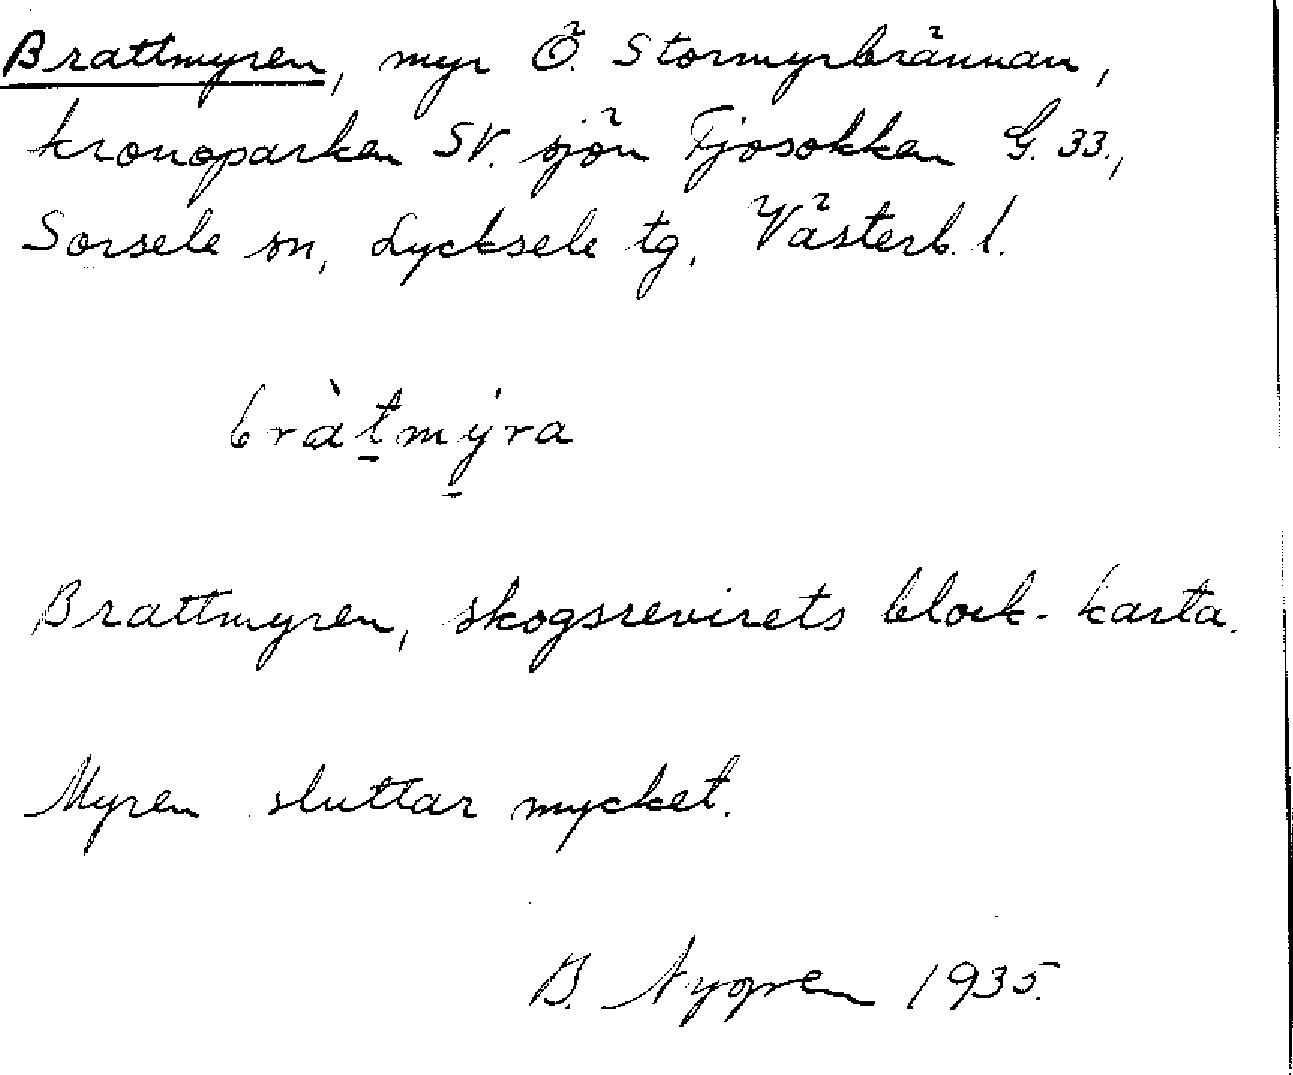 Brattmyren, myr Ö. Stormyrbrännan,
kronoparken SV. sjön Tjosokken G. 33.,
Sorsele sn, Lycksele tg, Västerb. l.
bràtmýra
Brattmyren, skogsrevirets block-karta.
Myren sluttar mycket.
B. Nygren 1935.